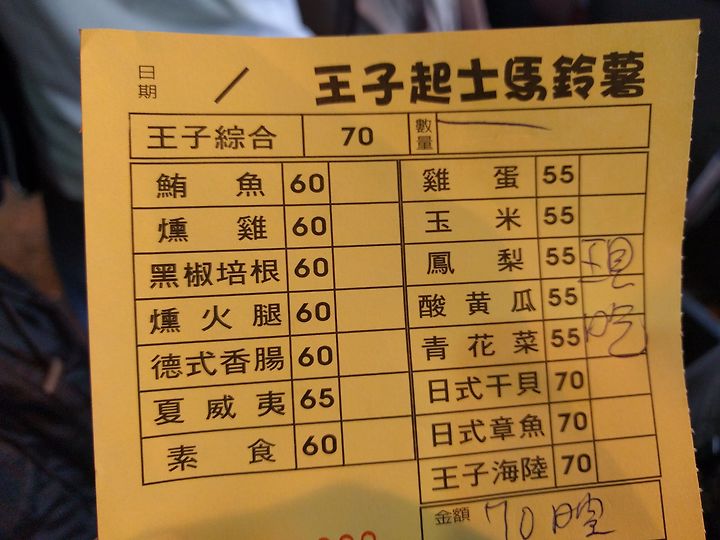 日期 / 王子起士馬鈴薯
王子綜合 70 數量 一
鮪魚 60 雞蛋 55
燻雞 60 玉米 55
黑椒培根 60 鳳梨 55 現
燻火腿 60 酸黃瓜 55
德式香腸 60 青花菜 55 吃
夏威夷 65 日式干貝 70
素食 60 日式章魚 70
王子海陸 70
金額 70